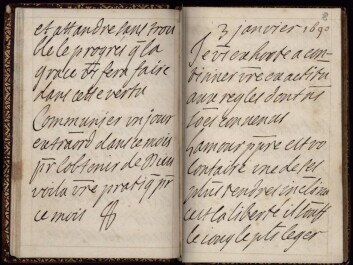 et attandre sans trou
de le progres q la
grace vs fera faire
dans cette vertu
Communier un jour
extraord dans ce mois
pr l'obtenir de Dieu
voila vre pratiq pr
ce mois
2
3 janvier 1690
Je vs exhorte a con
tinuer vre exactitu
aux regles dont
convenus
lamour ppre est vo
lontaire une de ses
plus tendres inclina
c'est la liberté il souff
le joug le pls leger